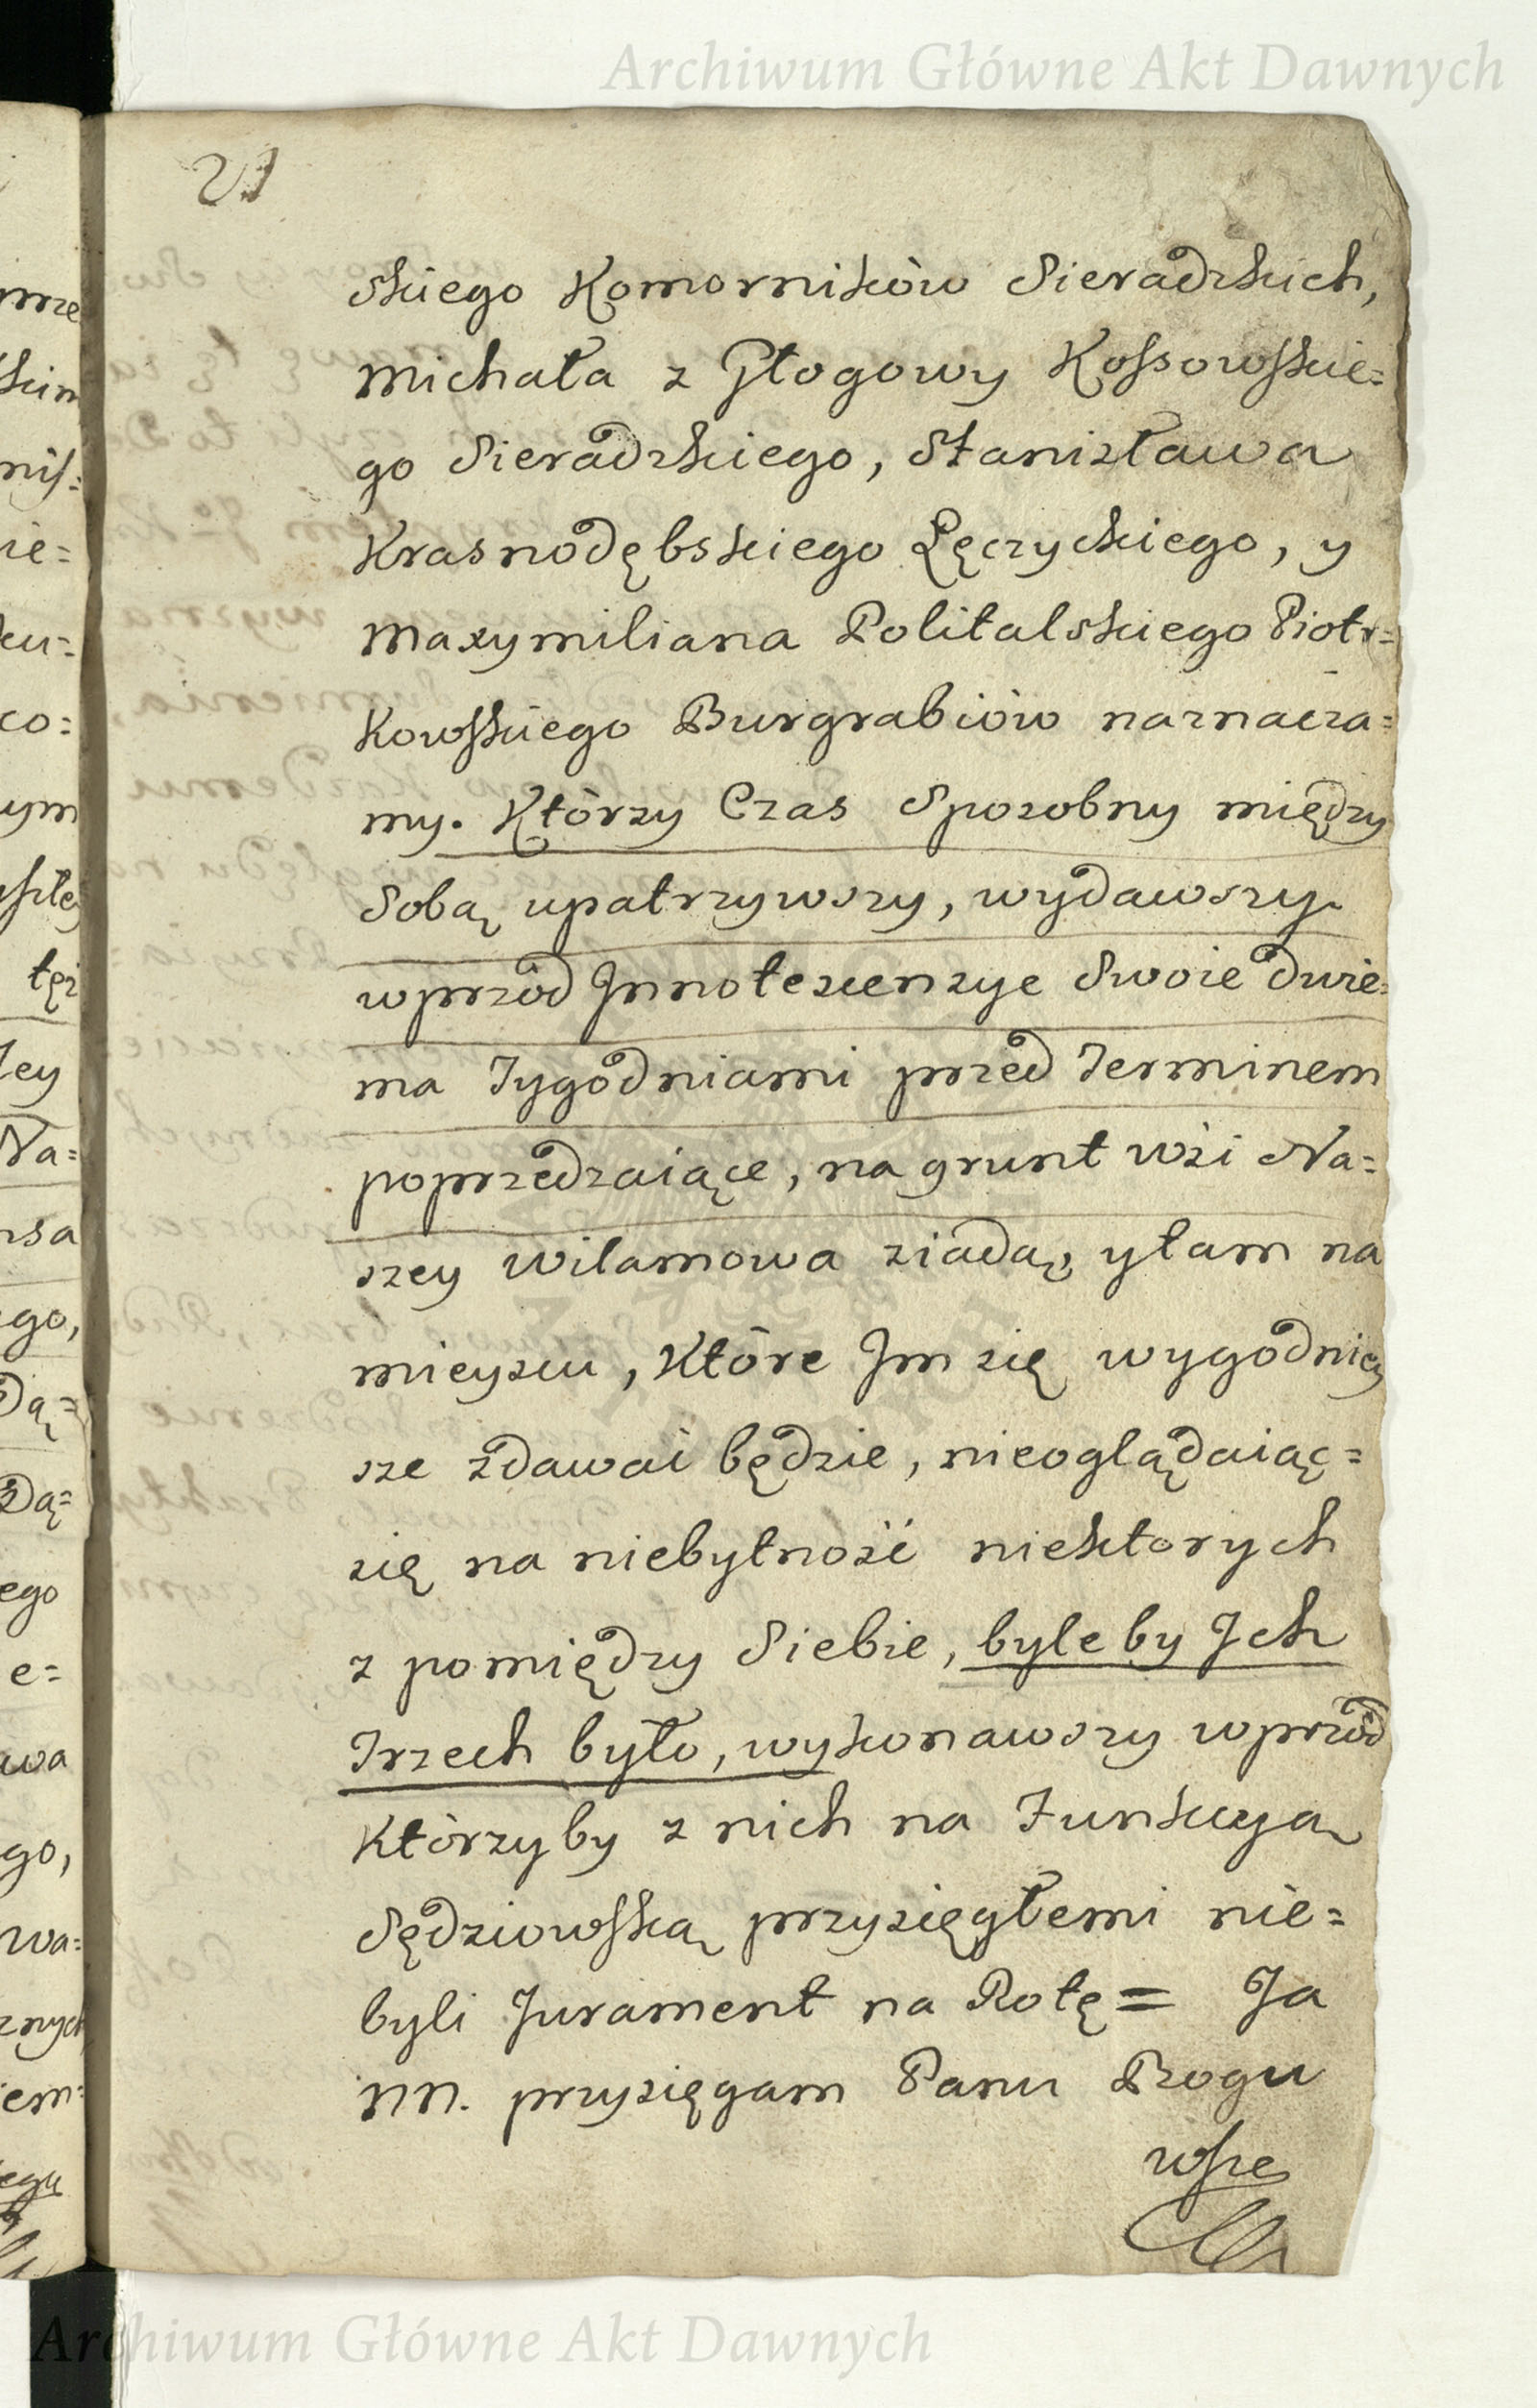 Archiwum Główne Akt Dawnych
21
skiego Komorników Sieradzkich,
Michała z Głogowy Kossowskie=
go Sieradzkiego, Stanisława
Krasnodębskiego Łęczyckiego, y
Maxymiliana Politalskiego Piotr=
kowskiego Burgrabiów naznacza=
my. Którzy Czas Sposobny między
Sobą upatrzywszy, wydawszy
wprzód Innotescencye Swoie dwie=
ma Tygodniami przed Terminem
poprzedzaiące, na grunt wsi Na=
szey Wilamowa ziadą, y tam na
mieyscu, które Im się wygodniey
sze zdawać będzie, nieoglądaiąc=
się na niebytność niektorych
z pomiędzy Siebie, byle by Ich
Trzech było, wykonawszy wprzód
którzyby z nich na Funkcyą
Sędziowską przysięgłemi nie=
byli Jurament na Rotę = Ja
NN. przysięgam Panu Bogu
wsze
Archiwum Główne Akt Dawnych